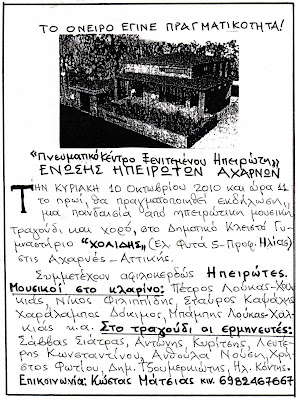 ΤΟ ΟΝΕΙΡΟ ΕΓΙΝΕ ΠΡΑΓΜΑΤΙΚΟΤΗΤΑ!
“Πνευματικό Κέντρο Ξενιτεμένου Ηπειρώτη„
ΕΝΩΣΗΣ ΗΠΕΙΡΩΤΩΝ ΑΧΑΡΝΩΝ
ΤΗΝ ΚΥΡΙΑΚΗ 10 Οκτωβρίου 2010 και ώρα 11
το πρωί, θα πραγματοποιηθεί εκδήλωση,
μια πανδαισία από ηπειρώτικη μουσική
τραγούδι και χορό, στο Δημοτικό Κλειστό Γυ-
μναστήριο “ΧΟΛΙΔΗΣ„ (Ελ. Φυτά 5-Προφ. Ηλίας)
στις Αχαρνές-Αττικής.
Συμμετέχουν αφιλοκερδώς Ηπειρώτες.
Μουσικοί στο κλαρίνο: Πέτρος Λούκας-Χαλ-
κιάς, Νίκος Φιλιππίδης, Σταύρος Καψάλης
Χαράλαμπος Δόκιμος, Μπάμπης Λούκας-Χαλ-
κιάς κ.α. Στο τραγούδι οι ερμηνευτές:
Σάββας Σιάτρας, Αντώνης Κυρίτσης, Λευτέ-
ρης Κωνσταντίνου, Ανθούλα Νούση, Χρή-
στος Φωτίου, Δημ. Τζουμερκιώτης, Ηλ. Κόντης.
Επικοινωνία: Κώστας Ματσιάς κιν. 6982467667